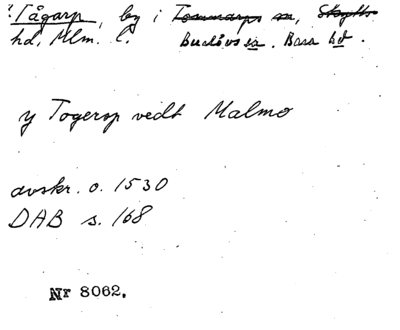 Tågarp, by i Tommarps sn, Skytts
hd, Mlm. l. Burlövs sn. Bara hd.
y Togerop vedt Malmo
avskr. o. 1530
DAB s. 168
Nr 8062.